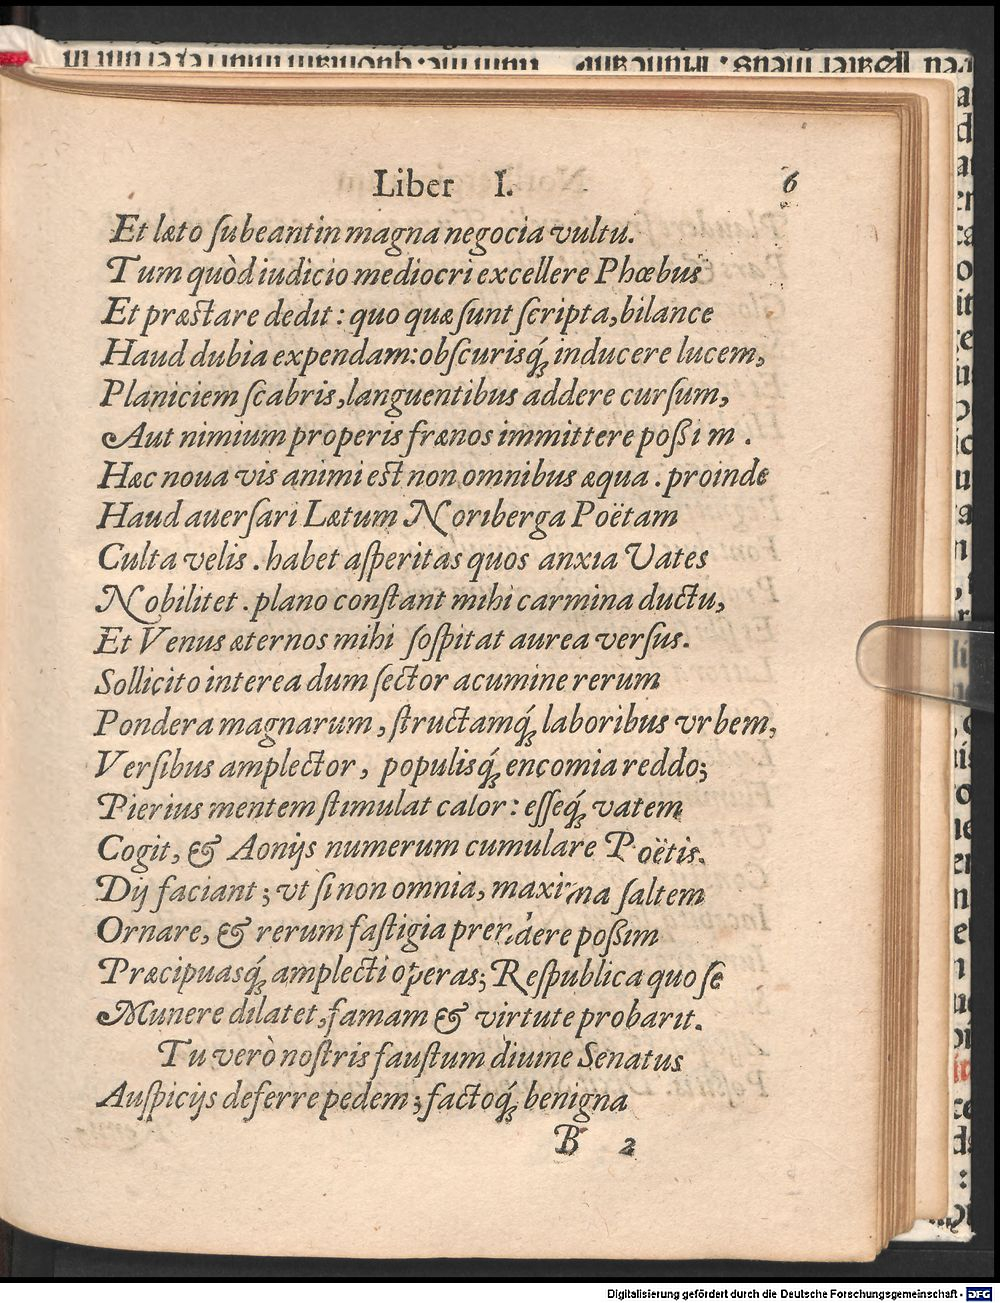 Liber I. 6
Et læto ſubeant in magna negocia vultu.
Tum quòd iudicio mediocri excellere Phœbus
Et præſtare dedit: quo quæ ſunt ſcripta, bilance
Haud dubia expendam: obſcurisq́ꝫ inducere lucem,
Planiciem ſcabris, languentibus addere curſum,
Aut nimium properis frænos immittere poßim.
Hæc noua vis animi eſt non omnibus æqua. proinde
Haud auerſari Lætum Noriberga Poëtam
Culta velis. habet aſperitas quos anxia Vates
Nobilitet. plano conſtant mihi carmina ductu,
Et Venus æternos mihi ſoſpitat aurea verſus.
Sollicito interea dum ſector acumine rerum
Pondera magnarum, ſtructamq́ꝫ laboribus vrbem,
Verſibus amplector, populisq́ꝫ encomia reddo;
Pierius mentem ſtimulat calor: eſſeq́ꝫ vatem
Cogit, & Aonijs numerum cumulare Poëtis.
Dij faciant; vt ſi non omnia, maxima ſaltem
Ornare, & rerum faſtigia prendere poßim
Præcipuasq́ꝫ amplecti operas; Reſpublica quo ſe
Munere dilatet, famam & virtute probarit.
Tu verò noſtris fauſtum diuine Senatus
Auſpicijs deferre pedem; factoq́ꝫ benigna
B 2
Digitalisierung gefördert durch die Deutsche Forschungsgemeinschaft - DFG